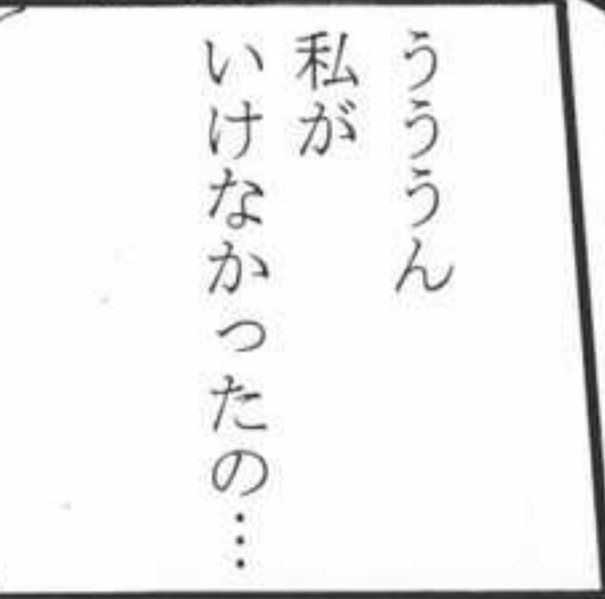 うううん
私が
いけなかったの…